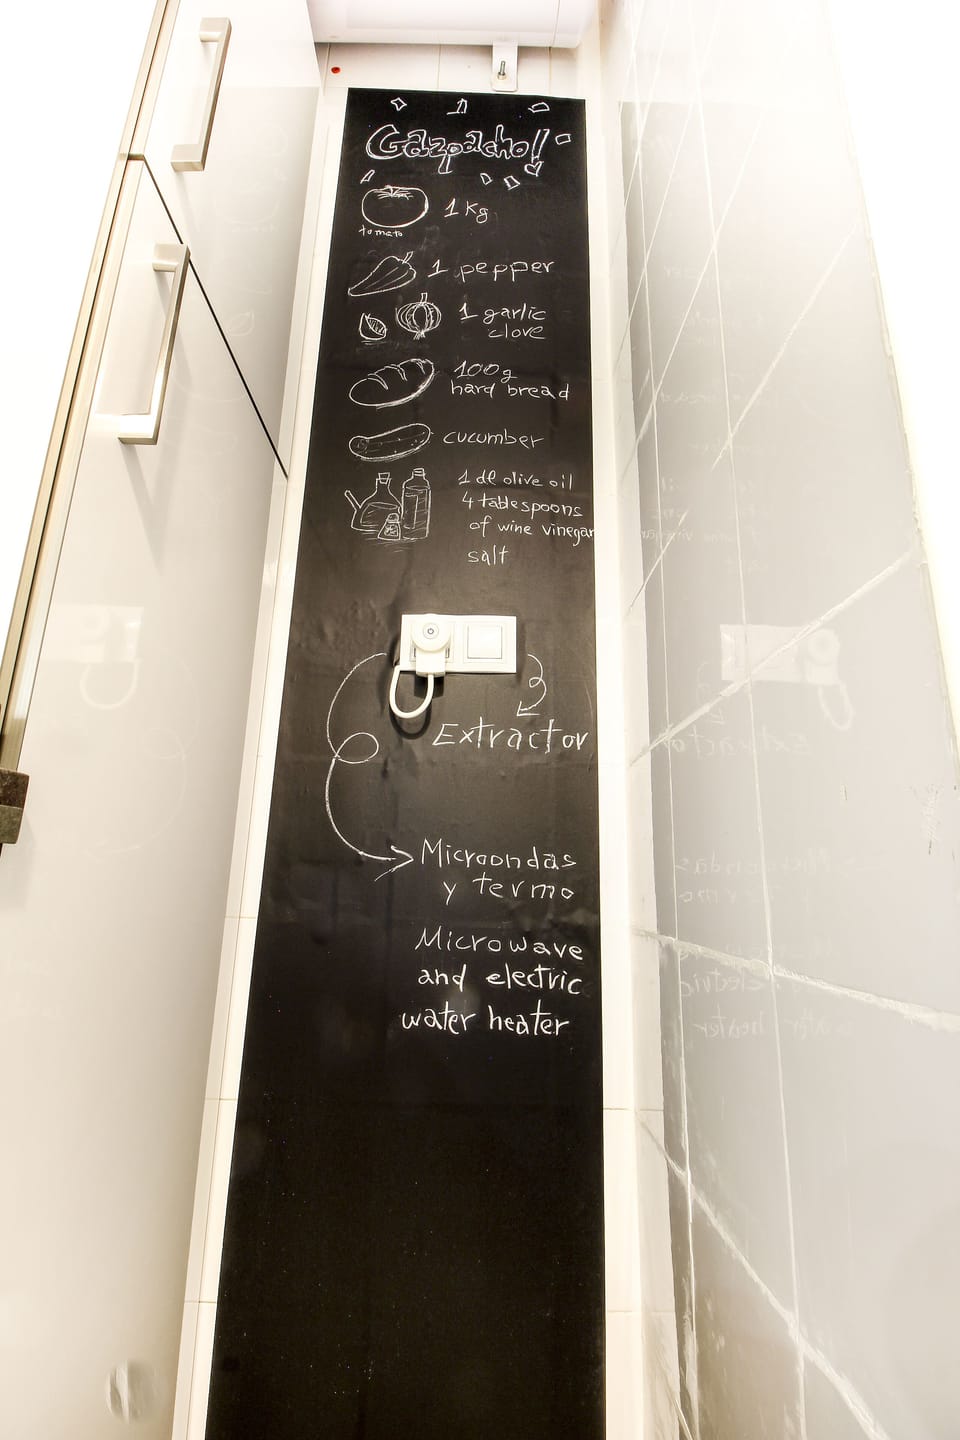 Gazpacho!
tomato
1 Kg
1 pepper
1 garlic
clove
100g
hard bread
cucumber
1 dl olive oil
4 tablespoons
of wine vinegar
salt
Extractor
Microondas
y termo
Microwave
and electric
water heater